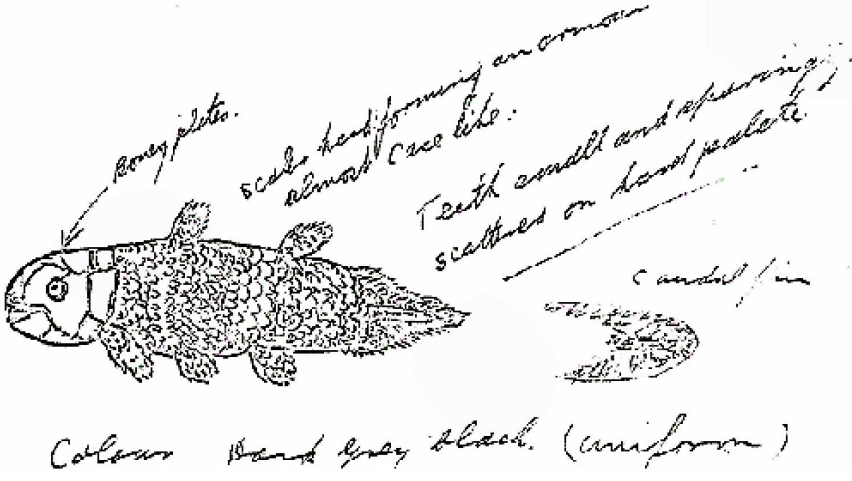 Boney plates.
scales hard forming an armour
almost case like.
Teeth small and sparingly
scattered on hard palate.
caudal fin
Colour Dark grey black. (uniform)